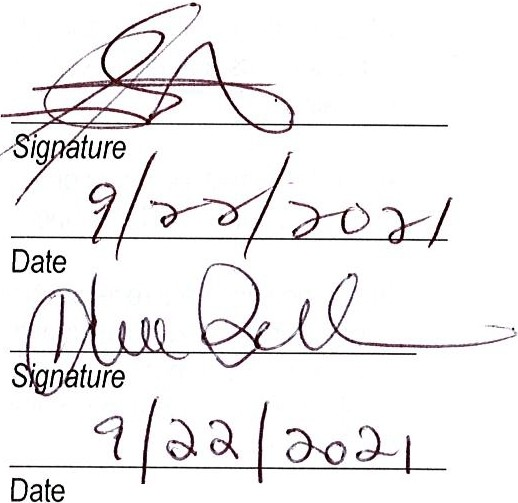 Signature
9/22/2021
Date
Signature
9/22/2021
Date